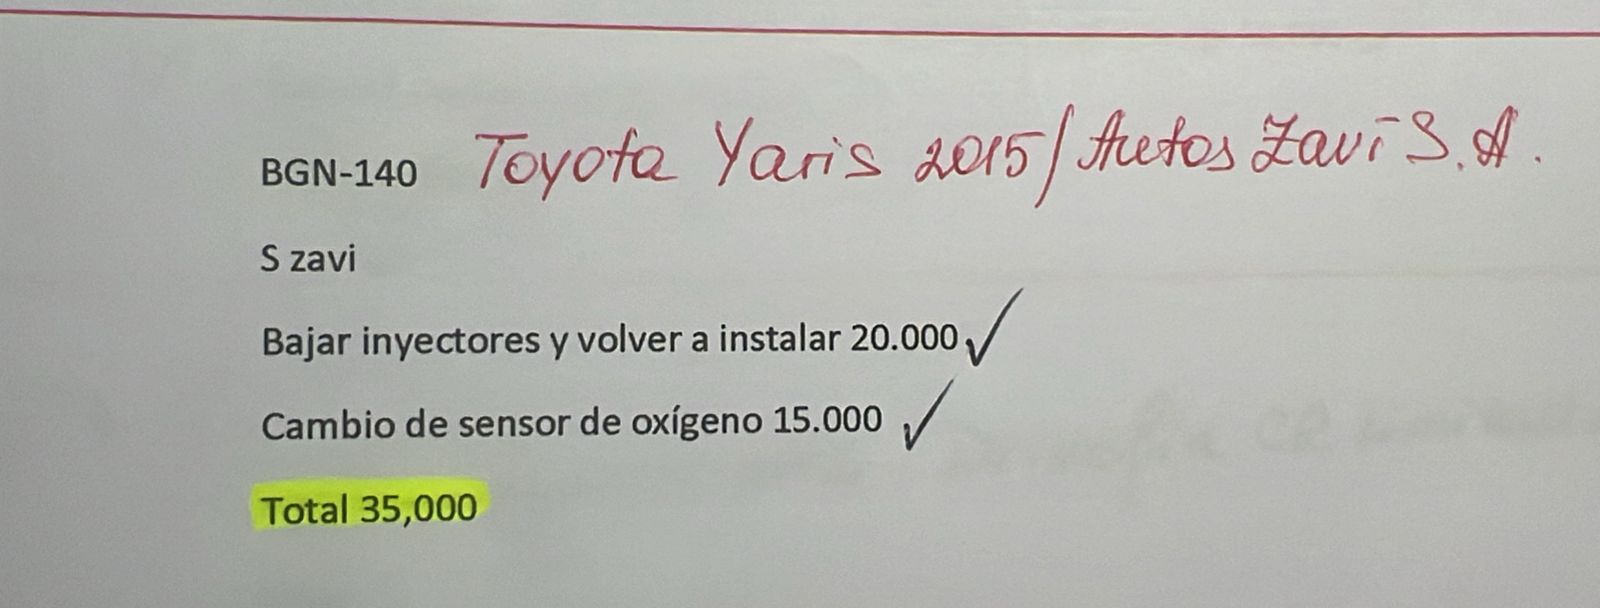 BGN-140 Toyota Yaris 2015/Autos Zavi S.A.
S zavi
Bajar inyectores y volver a instalar 20.000
Cambio de sensor de oxígeno 15.000
Total 35,000